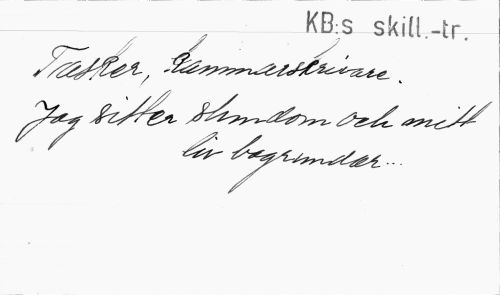 KB:s skill.-tr.
Trasker, Kammarskrivare.
Jag sitter stundom och mitt
liv begrundar...